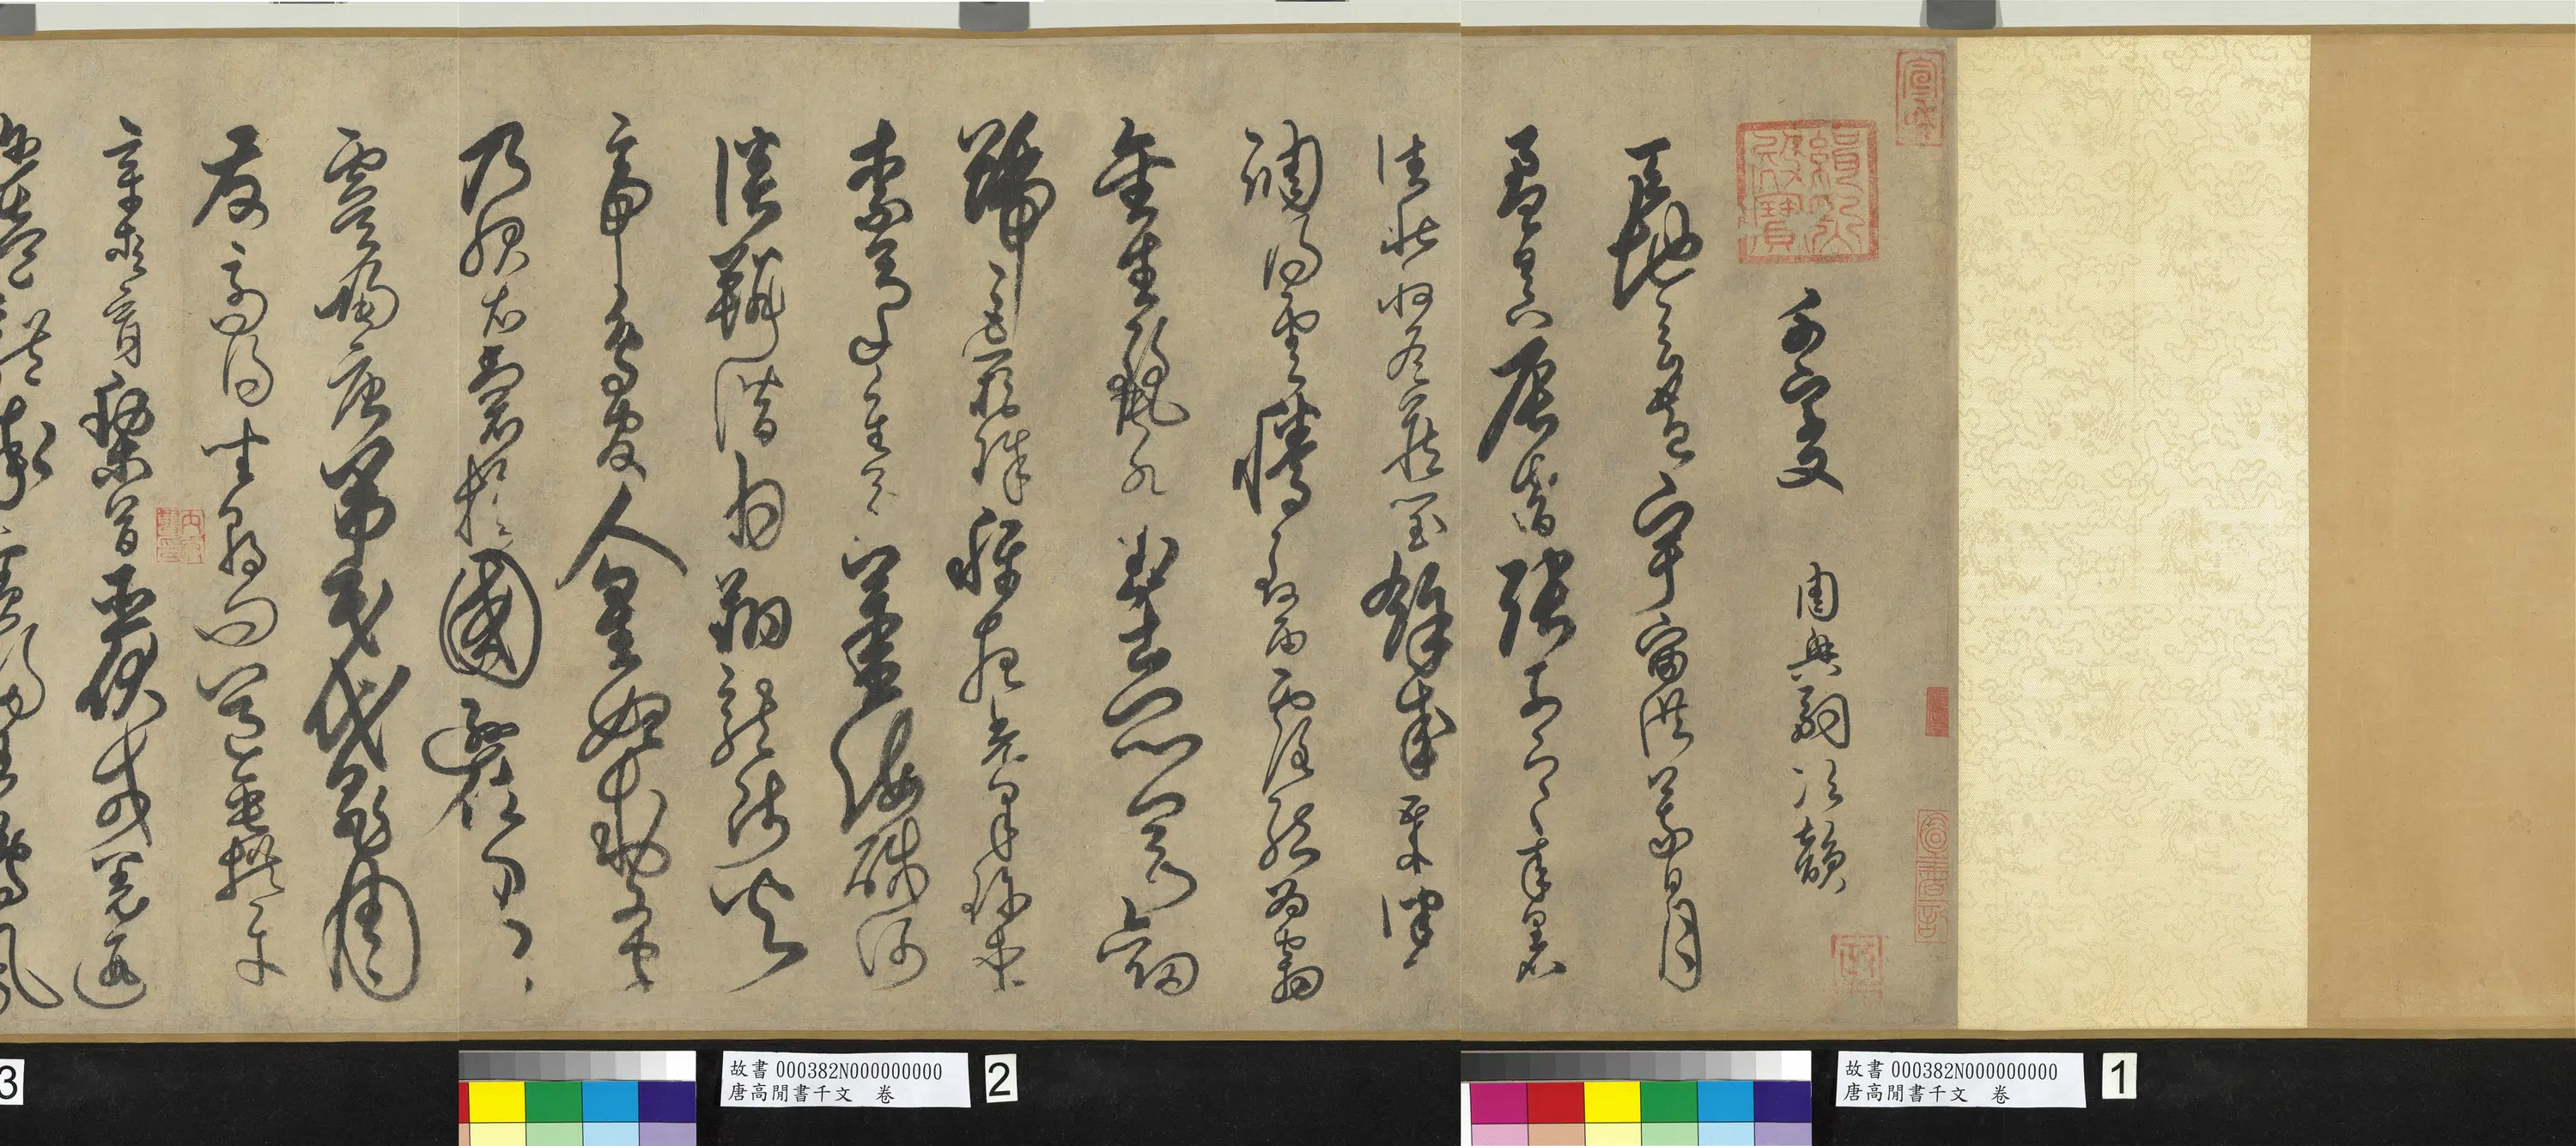 千字文 周興嗣次韻
天地玄黃宇宙洪荒日月
盈昃辰宿列張寒來暑
往秋收冬藏閏餘成歲律呂
調陽雲騰致雨露結為霜
金生麗水玉出崑崗劍
號巨闕珠稱夜光果珍李
柰菜重芥薑海鹹河
淡鱗潛羽翔龍師火
帝鳥官人皇始制文字
乃服衣裳推國遜位有
虞陶唐弔民伐罪周
發商湯坐朝問道垂拱平
章愛育黎首臣伏戎羌遐
邇壹體率賓歸王鳴鳳
3
故書 000382N000000000
唐高閒書千文 卷
2
故書 000382N000000000
唐高閒書千文 卷
1